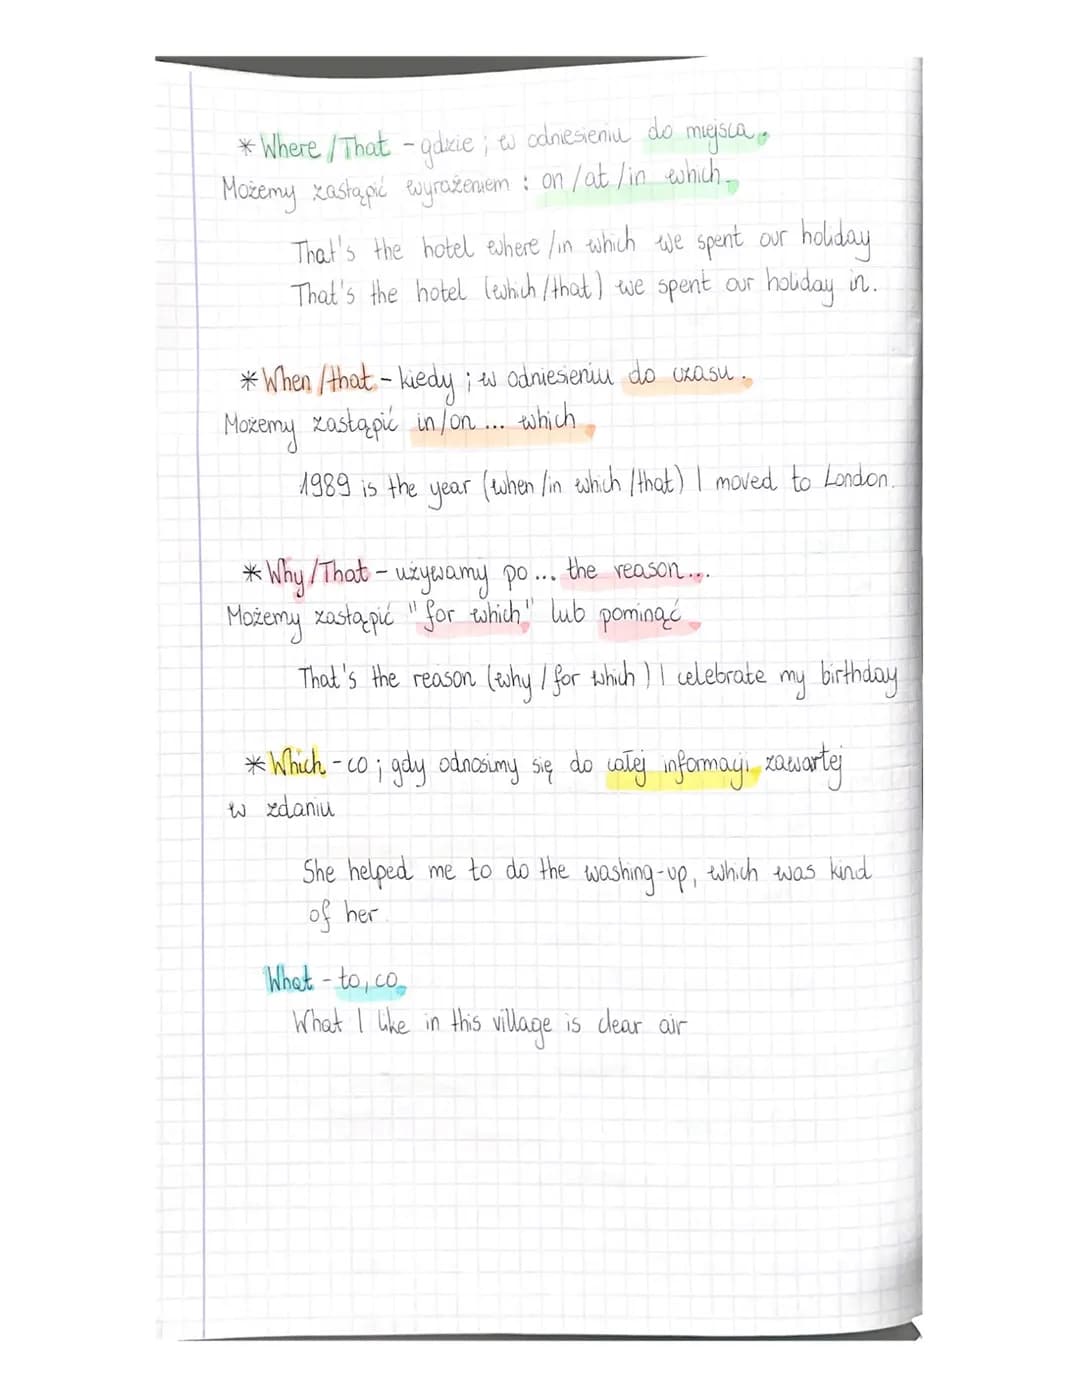 * Where / That - gdzie ; w odniesieniu do miejsca.
Możemy zastąpić wyrażeniem : on / at / in which.
That's the hotel where / in which we spent our holiday
That's the hotel (which / that) we spent our holiday in.
* When / that - kiedy ; w odniesieniu do czasu.
Możemy zastąpić in / on ... which
1989 is the year (when / in which / that) I moved to London.
* Why / That - używamy po ... the reason ...
Możemy zastąpić "for which" lub pominąć
That's the reason (why / for which) I celebrate my birthday
* Which - co ; gdy odnosimy się do całej informacji zawartej
w zdaniu
She helped me to do the washing-up, which was kind
of her
What - to, co
What I like in this village is clear air